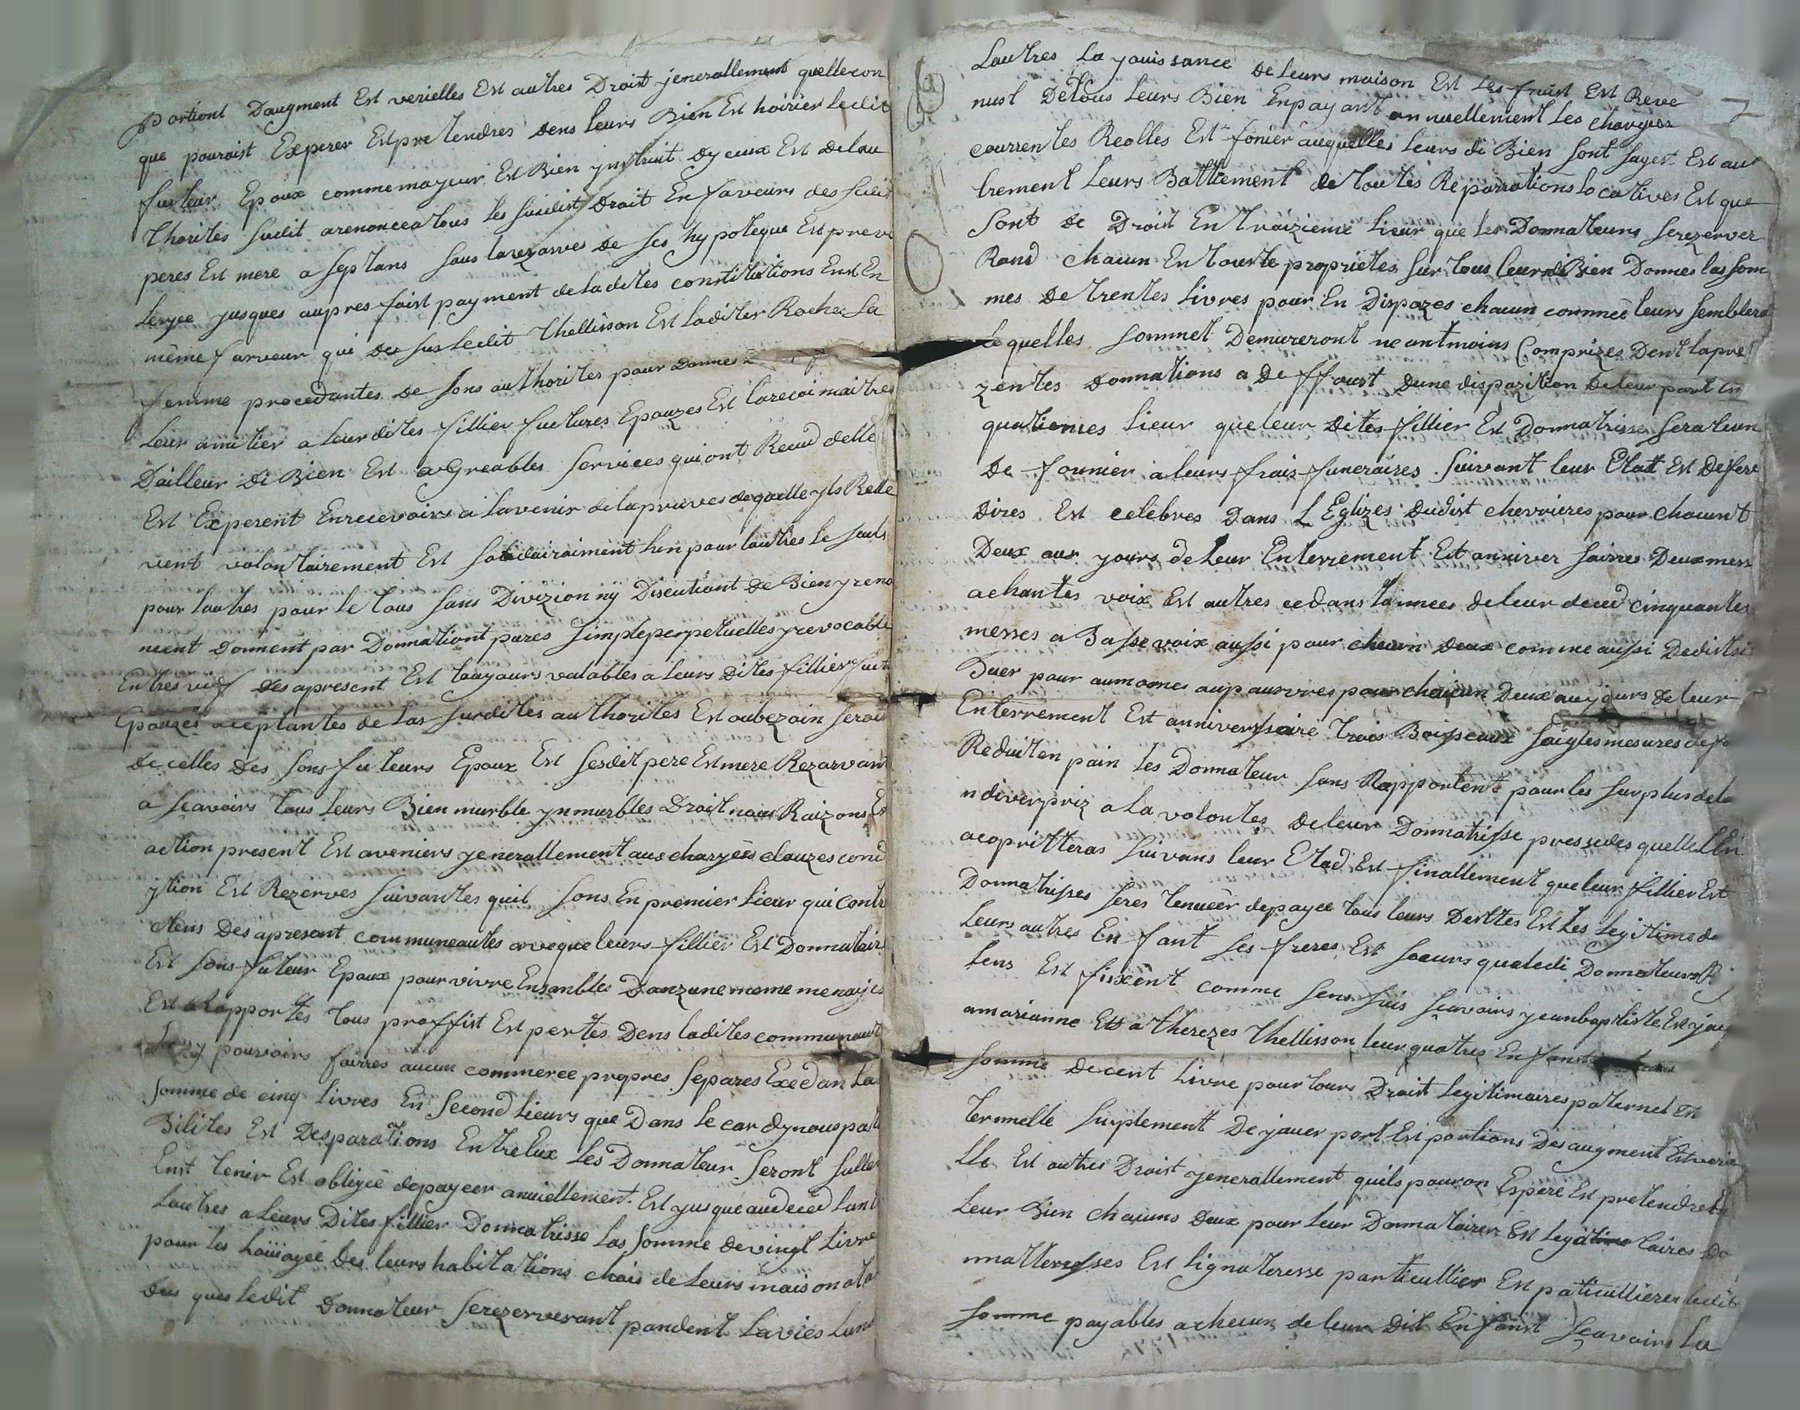 portiont Daugment Est verielles Est autres Droit jenerallement quellecon
que pouroist Experer Est pretendres dens leurs Bien Est hoirier ledit
futeur Epoux comme mayeur Est Bien ynstruit dyceux Est delau
thorites sudit arenonceatous les susdist Droit En faveurs des sudit
peres Est mere a septans sous larezarves de ses hypoteque Est previ
leryce jusques aupres faist payment deladites constitutions Enst En
même farveur qui de susledit thellisson Est ladites Roche La
femme procedantes de sons authorites pour donnes
Leur amitier a leurdites fillier futures Epouzes Est lareçoi maitres
Dailleur de Bien Est agreables services quiont Reçud delle
Est Experent Enrecevoirs a lavenir delaprúves dequelle yls Relle
vent volontairement Est solidairaiment lun pour lautres le seuls
pour lautres pour le tous sans Divizion ny Discutiont de Bien yreno
ment donnent par Donnationt pures simple perpetuelles yrevocable
Entres vifs des apresent Est toujours valables a leurs dites fillier fut
Epouzes aceptantes de las surdites authorites Est aubezoin serois
de celles des sons futeurs Epoux Est sesdit pere Est mere Rezarvant
a scavoirs tous leurs Bien murble ynmurbles Droit nous Raizons Es
action present Est aveniers yenerallement aux charyées clauzes cond
ytion Est Rezerves suivantes quil sons En premier lieur qui Contr
ctens Des apresent communeautes arveque leurs fillier Est Donnatair
Est sons futeur Epoux pour vivre Ensanbles Danzune meme menajes
Est Rapportes tous proffist Est pertes Dens ladites communaut
pouvoirs fairres aucun commerce propres separes Exedan La
somme de cinq livres En second lieurs que Dans le car dynouspati
Bilites Est Desparations Entrelux les Donnateur seront sulles
Enst tenir Est obligée depayeer anuiellement Est jusque audeced lunt
Lautres a leurs Dites fillier Donnatrisse las somme devingt livre
pour les loüoyée Des leurs habitations chois de leurs maison ala
Des ques ledit Donnateur serezerverant pandent laviés lunt
Lautres la jouissance de leurs maison Est les fruist Est Reve
nust Detous leurs Bien Enpayant annuellement les charyes
courrentes Reolles Est fonier auquelles leurs di Bien sont sujest Est aut
trement leurs Battiement de toutes Réparrations locatives Est que
sont de Droit En troizieme lieur que les Donnateurs serezerver
Rond chacun En tourte proprietes sur tous leurs Bien Donnés las som
mes de trentes livres pour En Dispozes chacun commeé leurs semblera
lequelles sommet Demureront neantmoins Comprizes Dent lapre
zentes Donnations a De ffoust dune dispozition de leur part En
quatiemes lieur queleur dites fillier Est Donnatrisse sera tenu
De founier aleurs frais funeraires suivant leur Etat Est defere
dires Est celébres Dans L Eglizes dudist chevrieres pour chacunt
Deux aux yours de leur Enterrement Est anniver sairres Deux mess
achantes voix Est autres eedans lannees deleur deced cinquantes
messes a Basse voix aussi pour chacun deux comme aussi dedistri
Buer pour aumoones aupauvres pour chaicun Deux aujours de leur
Enterrement Est anniversaire trois Boisseaux saigles mesures desp
Reduiten pain les Donnateur sans Rapportent pour les surplus dela
ndiverpriz a la volontes deleur Donnatrisse pressedes quelle LEn
acopritteras suivans leur Etad Est finallement queleur fillier Est
Donnatrisses seres tenuéer depayée tous leurs Derttes Est Les Legitime de
Leurs autres En fant ses freres Est soeurs queledi Donnateurs R
Lens Est fixênt comme sens suis scavoirs yeanbaptiste Est jaq
amarianne Est atherezes thellisson leur quatres Enfans
somme decent livre pour tours Droist Legitimaires paternel Est
termelle suplement Dejauer port Est portions Desaugment Est verie
lle Est autres Droist yenerallement quils pouroon Esperé Est pretendre
Leur Bien chacuns deux pour leur Donnatairer Est legitime laires Do
nnatteresses Est lignateresse particullier Est paticullieres ledit
somme payables a checun de leur dit Enfanst scavoirs La